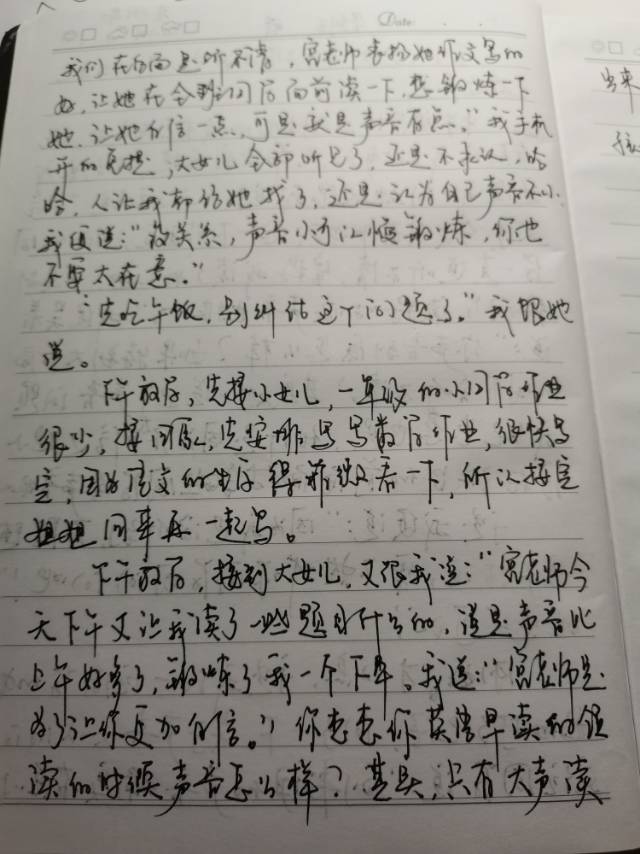 Date
我们在后面是听不清，宫老师表扬她作文写的
好，让她在全班同学面前读一下，想锻炼一下
她，让她自信一点，可是就是声音有点。”我手机
开的免提，大女儿全部听见了，还是不承认，哈
哈，人让我都给她找了，还是认为自己声音不小。
我便道：“没关系，声音小可以慢锻炼，你也
不要太在意。”
“先吃午饭，别纠结这个问题了。”我跟她
道。
下午放学，先接小女儿，一年级的小同学作业
很少，接回家，先安排写写数学作业，很快写
完，因为语文的生字得带她看一下，所以接完
姐姐回来再一起写。
下午放学，接到大女儿，又跟我道：“宫老师今
天下午又让我读了一些题目什么的，道是声音比
上午好多了，锻炼了我一个下午。我道：“宫老师是
为了让你更加自信。”你想想你英语早读的领
读的时候声音怎么样？其实，只有大声读
出来